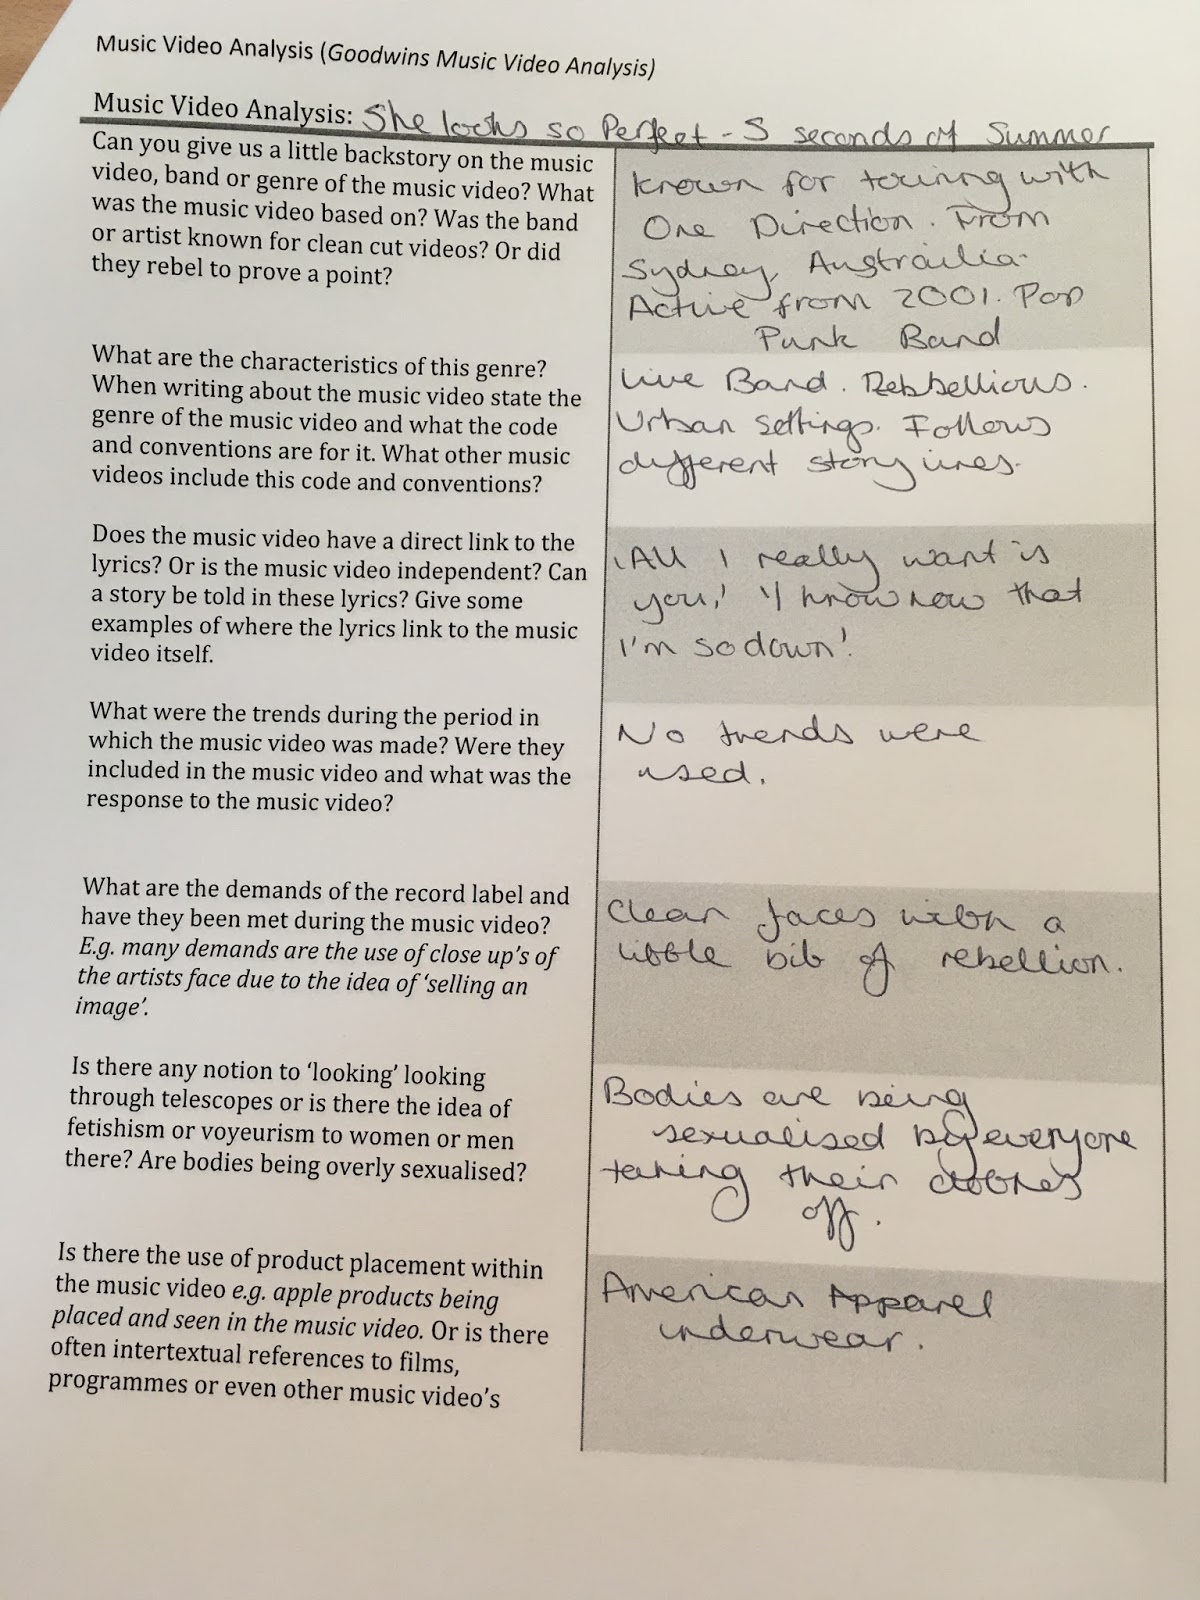 Music Video Analysis (Goodwins Music Video Analysis)
Music Video Analysis: She looks so Perfect - 5 seconds of Summer
Can you give us a little backstory on the music
video, band or genre of the music video? What
was the music video based on? Was the band
or artist known for clean cut videos? Or did
they rebel to prove a point?
Known for touring with
One Direction. From
Sydney, Austrailia.
Active from 2001. Pop
Punk Band
What are the characteristics of this genre?
When writing about the music video state the
genre of the music video and what the code
and conventions are for it. What other music
videos include this code and conventions?
Live Band. Rebbellious.
Urban settings. Follows
different story lines.
Does the music video have a direct link to the
lyrics? Or is the music video independent? Can
a story be told in these lyrics? Give some
examples of where the lyrics link to the music
video itself.
'All I really want is
you,' 'I know now that
I'm so down'.
What were the trends during the period in
which the music video was made? Were they
included in the music video and what was the
response to the music video?
No trends were
used.
What are the demands of the record label and
have they been met during the music video?
E.g. many demands are the use of close up's of
the artists face due to the idea of 'selling an
image'.
Clean faces with a
little bit of rebellion.
Is there any notion to 'looking' looking
through telescopes or is there the idea of
fetishism or voyeurism to women or men
there? Are bodies being overly sexualised?
Bodies are being
sexualised by everyone
taking their clothes
off.
Is there the use of product placement within
the music video e.g. apple products being
placed and seen in the music video. Or is there
often intertextual references to films,
programmes or even other music video's
American Apparel
underwear.